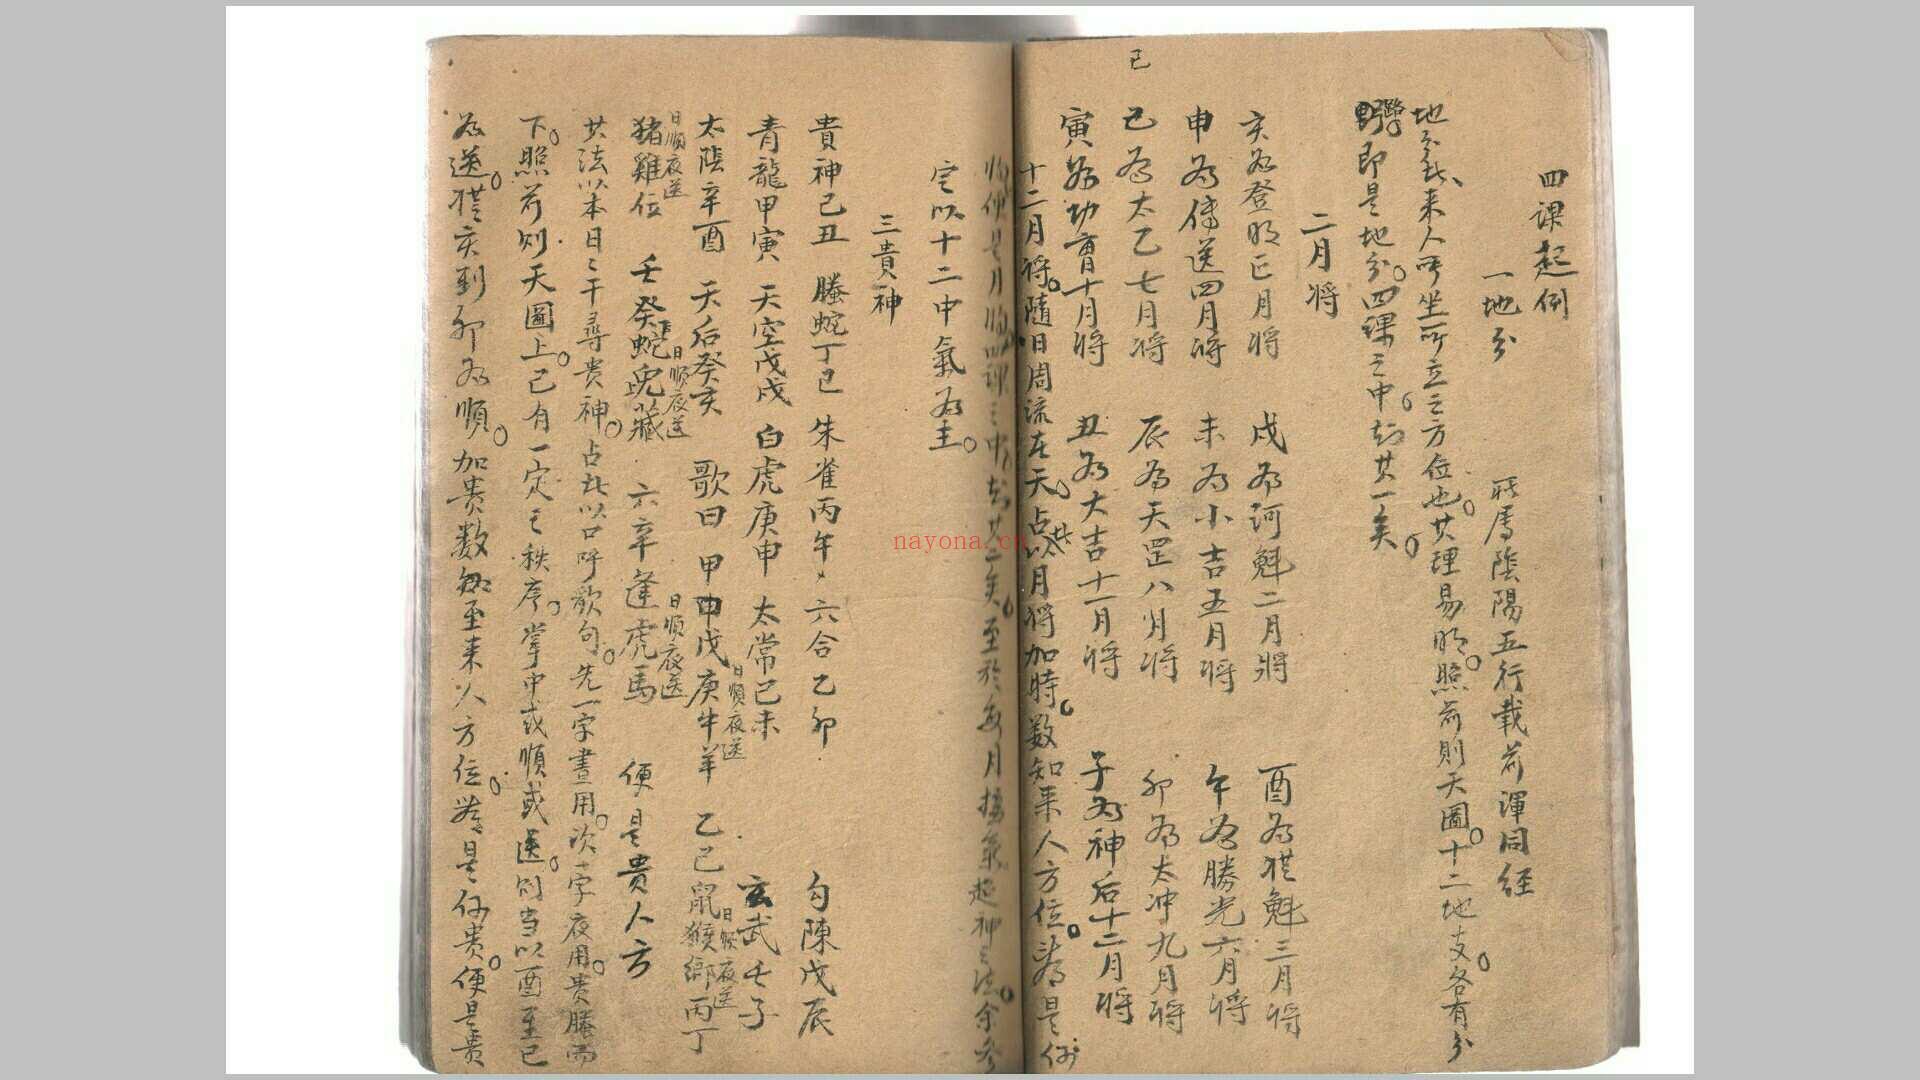 已
四課起例
一地分 所属陰陽五行載前渾同經
地之我来人所坐所立之方位也其理易明照前則天圖十二地支各有分
野即是地分四課之中起其一矣
二月将
亥為登明正月将 戌為河魁二月将 酉為從魁三月将
申為傳送四月将 未為小吉五月将 午為勝光六月将
巳為太乙七月将 辰為天罡八月将 卯為太冲九月将
寅為功曹十月将 丑為大吉十一月将 子為神后十二月将
十二月将随日周流在天占此以月将加時数知来人方位若是何
將便是月將四課之中起其二矣至於每月換氣起神之法余参
定以十二中氣為主
三貴神
貴神己丑 螣蛇丁巳 朱雀丙午 六合乙卯 勾陳戊辰
青龍甲寅 天空戊戌 白虎庚申 太常己未 玄武壬子
太陰辛酉 天后癸亥 歌曰 甲戊庚牛羊 日順夜送 乙己鼠猴鄉 日順夜送 丙丁
猪雞位 日順夜送 壬癸蛇兔藏 日順夜送 六辛逢虎馬 日順夜送 便是貴人方
其法以本日之干尋貴神占此以口呼歌句先一字晝用次一字夜用貴螣而
下照前则天圖上已有一定之秩序掌中或順或送则当以酉至巳
為送從亥到卯為順加貴数知至来人方位若是何貴便是貴
nayona.cn